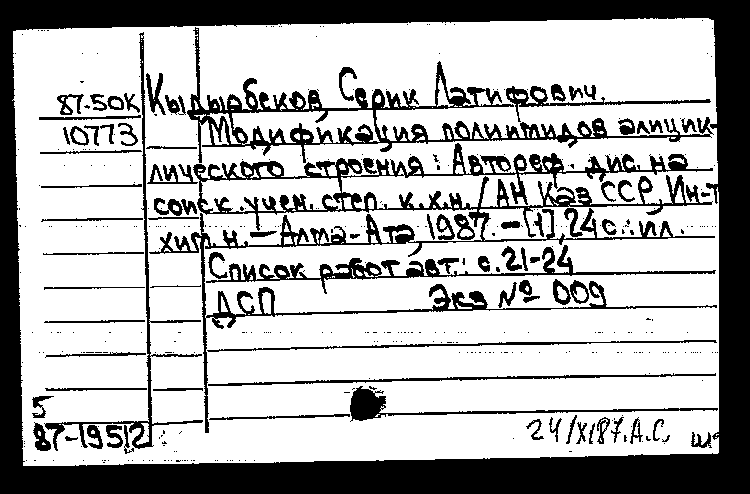 87-50К Кыдырбеков, Серик Латифович.
10773 Модификация полиимидов алицик-
лического строения: Автореф. дис. на
соиск. учен. степ. к.х.н. / АН Каз ССР, Ин-т
хим. н. — Алма-Ата, 1987. — [1], 24 с.: ил.
Список работ авт.: с. 21-24
ДСП Экз № 009
5
87-19512
24/XI87. А.С.